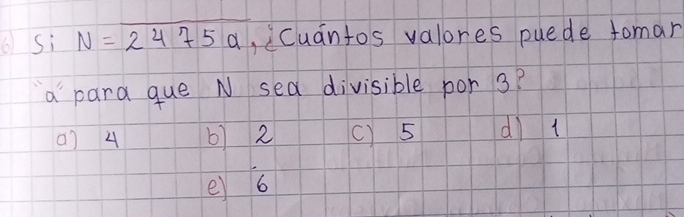 6) Si N = 2475a, ¿Cuántos valores puede tomar
"a" para que N sea divisible por 3?
a) 4 b) 2 c) 5 d) 1
e) 6